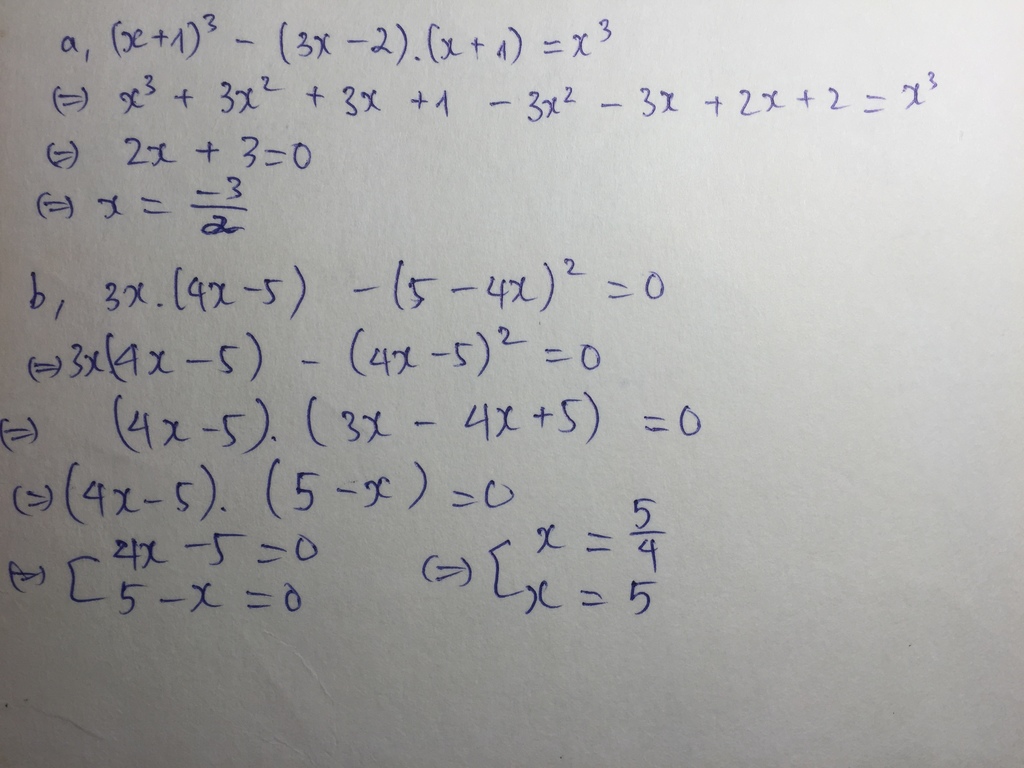 a, (x+1)³ - (3x-2).(x+1) = x³
(=) x³ + 3x² + 3x + 1 - 3x² - 3x + 2x + 2 = x³
(=) 2x + 3 = 0
(=) x = -3/2
b, 3x.(4x-5) - (5-4x)² = 0
(=) 3x(4x-5) - (4x-5)² = 0
(=) (4x-5).(3x - 4x+5) = 0
(=) (4x-5).(5-x) = 0
(=) [ 4x-5 = 0 (=) [ x = 5/4
5-x = 0 x = 5